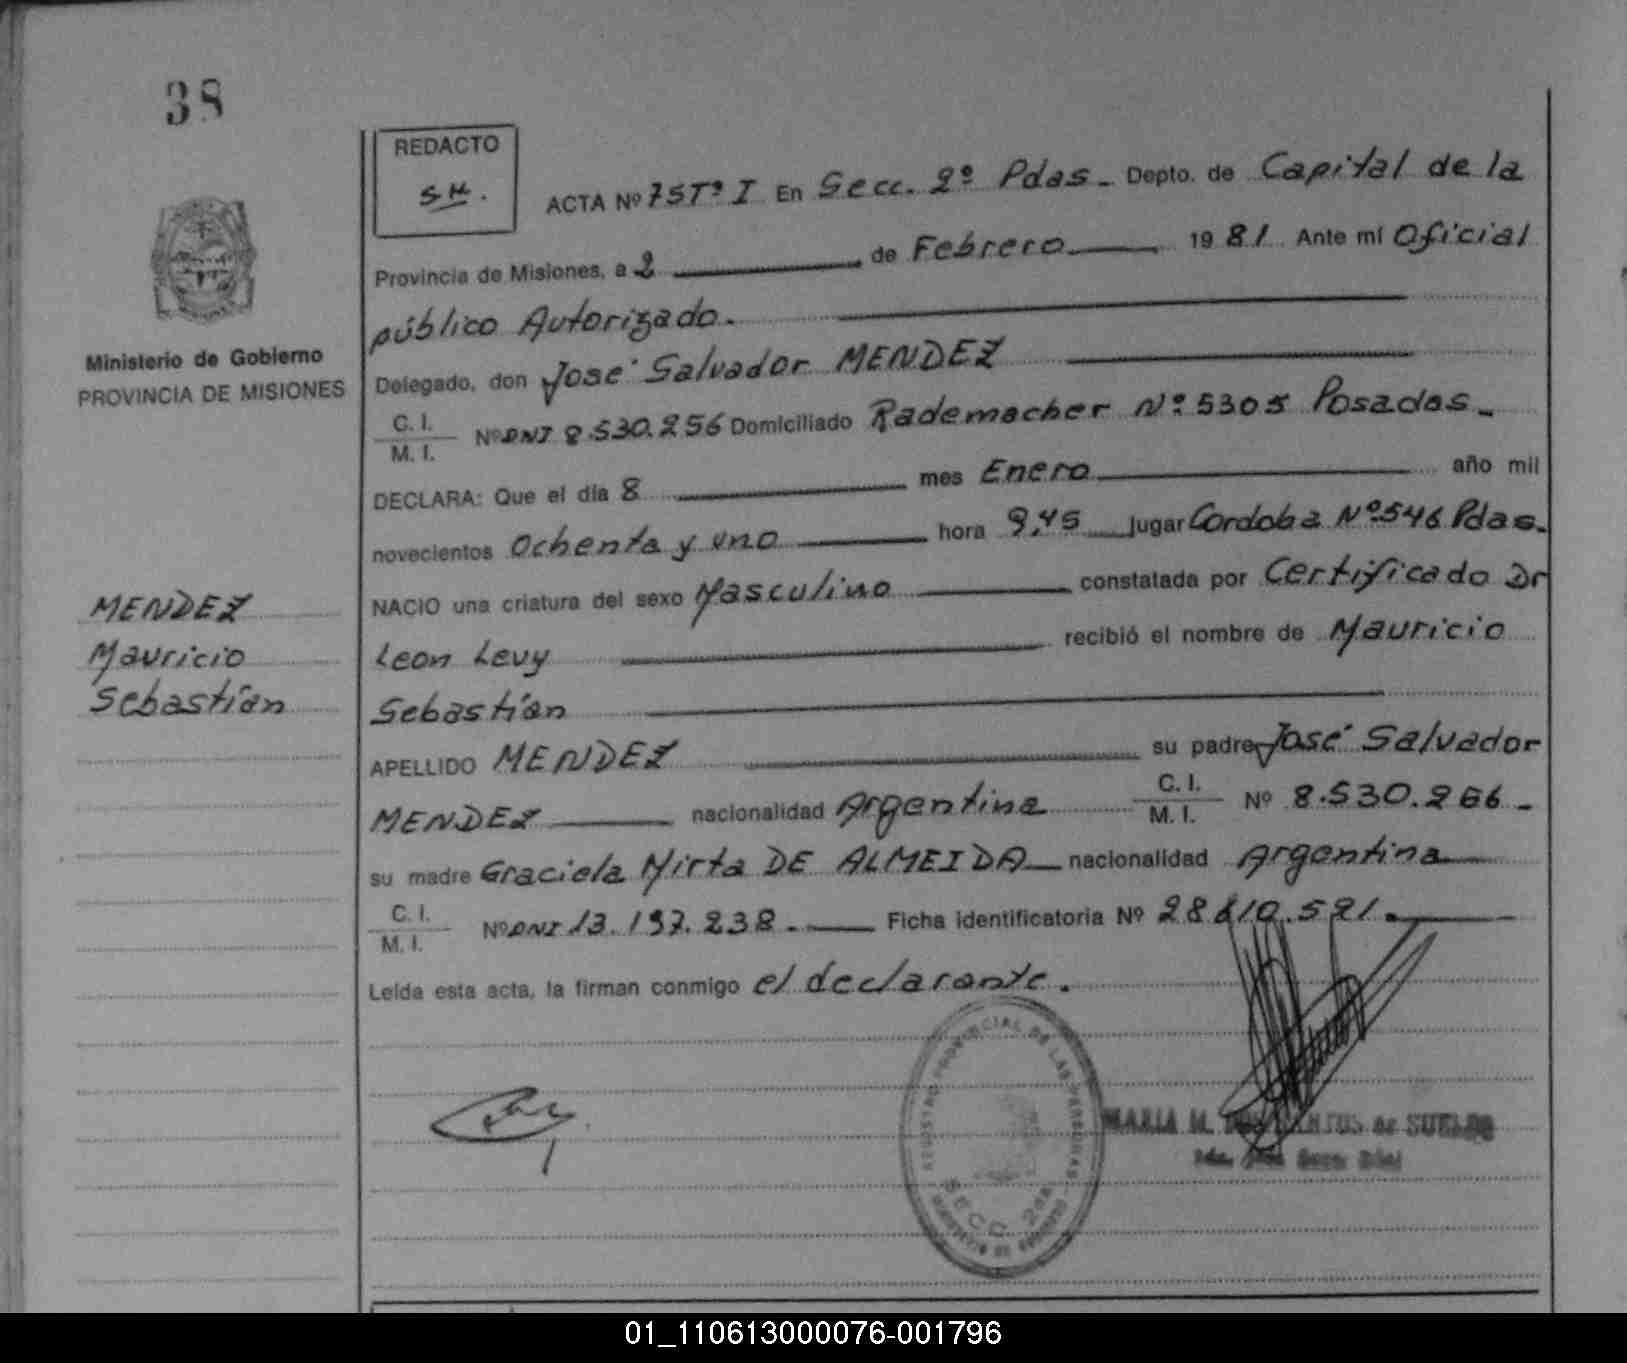 38
REDACTO
S.M.
ACTA Nº 75Tº I En Secc. 2º Pdas. Depto. de Capital de la
Provincia de Misiones, a 2 de Febrero 1981 Ante mí Oficial
público Autorizado.
Ministerio de Gobierno
PROVINCIA DE MISIONES
Delegado, don José Salvador MENDEZ
C. I.
M. I. Nº DNI 8.530.256 Domiciliado Rademacher Nº 5305 Posadas.
DECLARA: Que el día 8 mes Enero año mil
novecientos Ochenta y uno hora 9,45 lugar Cordoba Nº 546 Pdas.
NACIO una criatura del sexo Masculino constatada por Certificado Dr
Leon Levy recibió el nombre de Mauricio
Sebastián
MENDEZ
Mauricio
Sebastián
APELLIDO MENDEZ su padre José Salvador
MENDEZ nacionalidad Argentina C. I.
M. I. Nº 8.530.266.
su madre Graciela Mirta DE ALMEIDA nacionalidad Argentina
C. I.
M. I. Nº DNI 13.197.238. Ficha identificatoria Nº 28.610.591.
Leída esta acta, la firman conmigo el declarante.
REGISTRO PROVINCIAL DE LAS PERSONAS
SECC. 2da
MINISTERIO DE GOBIERNO
MARIA M. DOS SANTOS de SUELDO
01_110613000076-001796